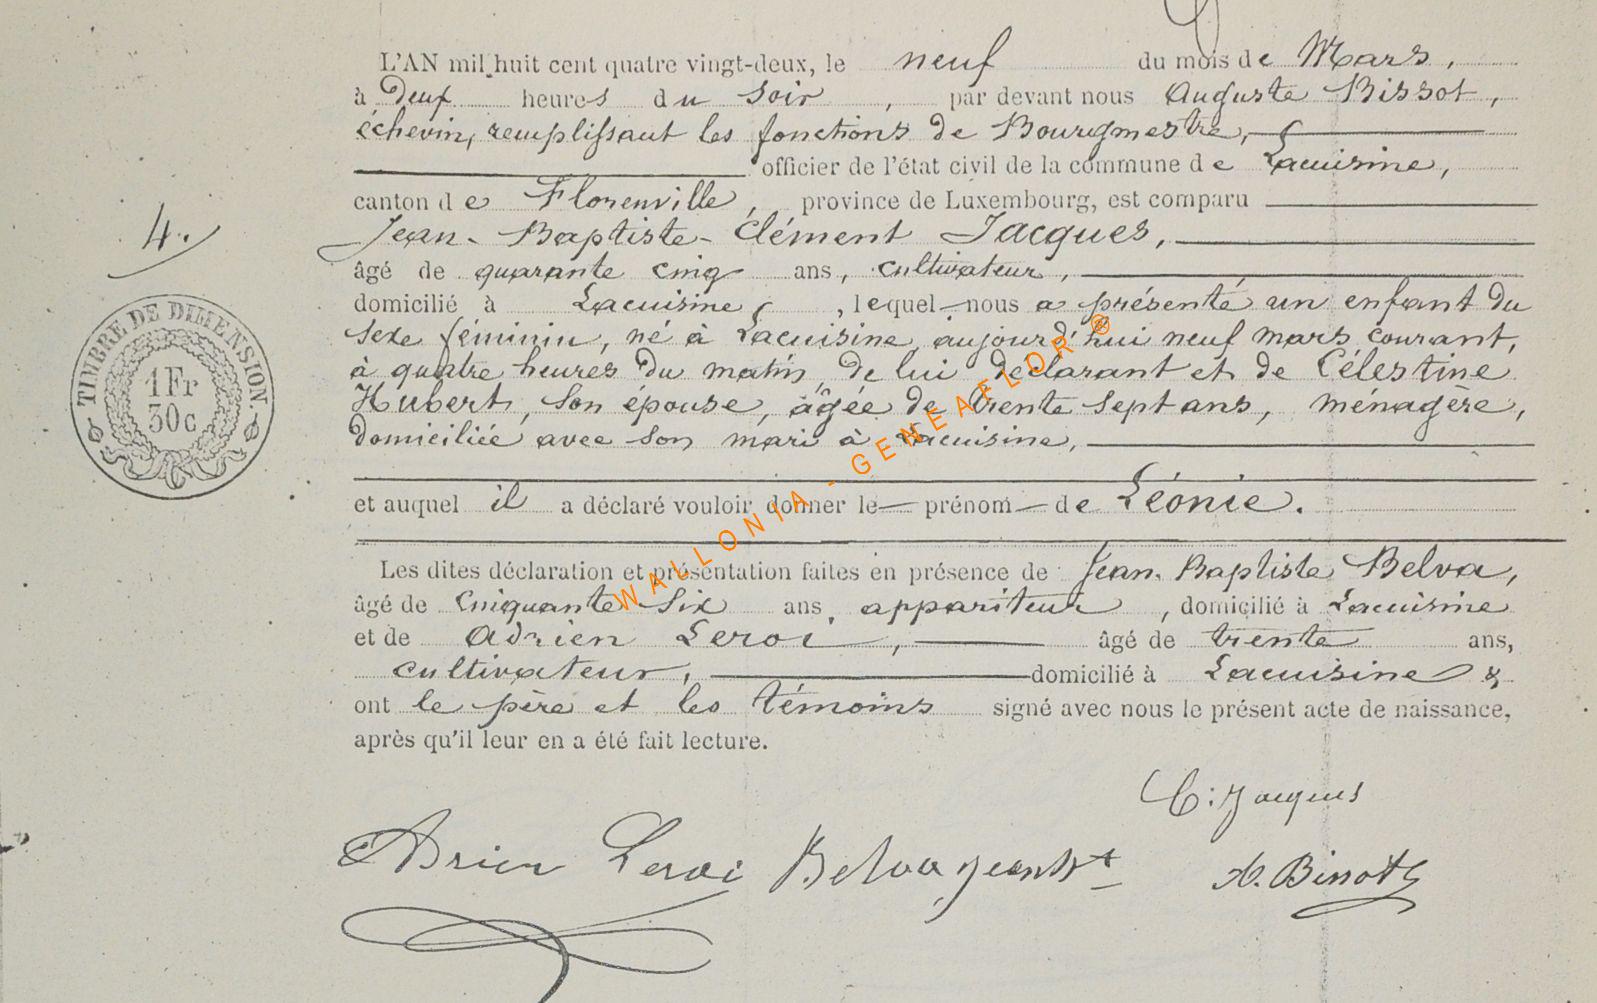 L'AN mil huit cent quatre vingt-deux, le neuf du mois de Mars,
à Deux heures du soir, par devant nous Auguste Bissot,
échevin, remplissant les fonctions de Bourgmestre,
officier de l'état civil de la commune de Lacuisine,
canton de Florenville, province de Luxembourg, est comparu
Jean-Baptiste-Clément Jacques,
4.
âgé de quarante cinq ans, cultivateur,
domicilié à Lacuisine, lequel nous a présenté un enfant du
sexe féminin, né à Lacuisine, aujourd'hui neuf mars courant,
à quatre heures du matin, de lui déclarant et de Célestine
Hubert, son épouse, âgée de trente sept ans, ménagère,
domiciliée avec son mari à Lacuisine,
TIMBRE DE DIMENSION.
1 Fr
30c
et auquel il a déclaré vouloir donner le prénom de Léonie.
Les dites déclaration et présentation faites en présence de Jean-Baptiste Belva,
âgé de Cinquante six ans, appariteur, domicilié à Lacuisine
et de Adrien Leroi, âgé de trente ans,
cultivateur, domicilié à Lacuisine &
ont le père et les témoins signé avec nous le présent acte de naissance,
après qu'il leur en a été fait lecture.
C: Jacques
Adrien Leroi Belva Jean Bt A. Bissot
WALLONIA - GENEAFLOR ®